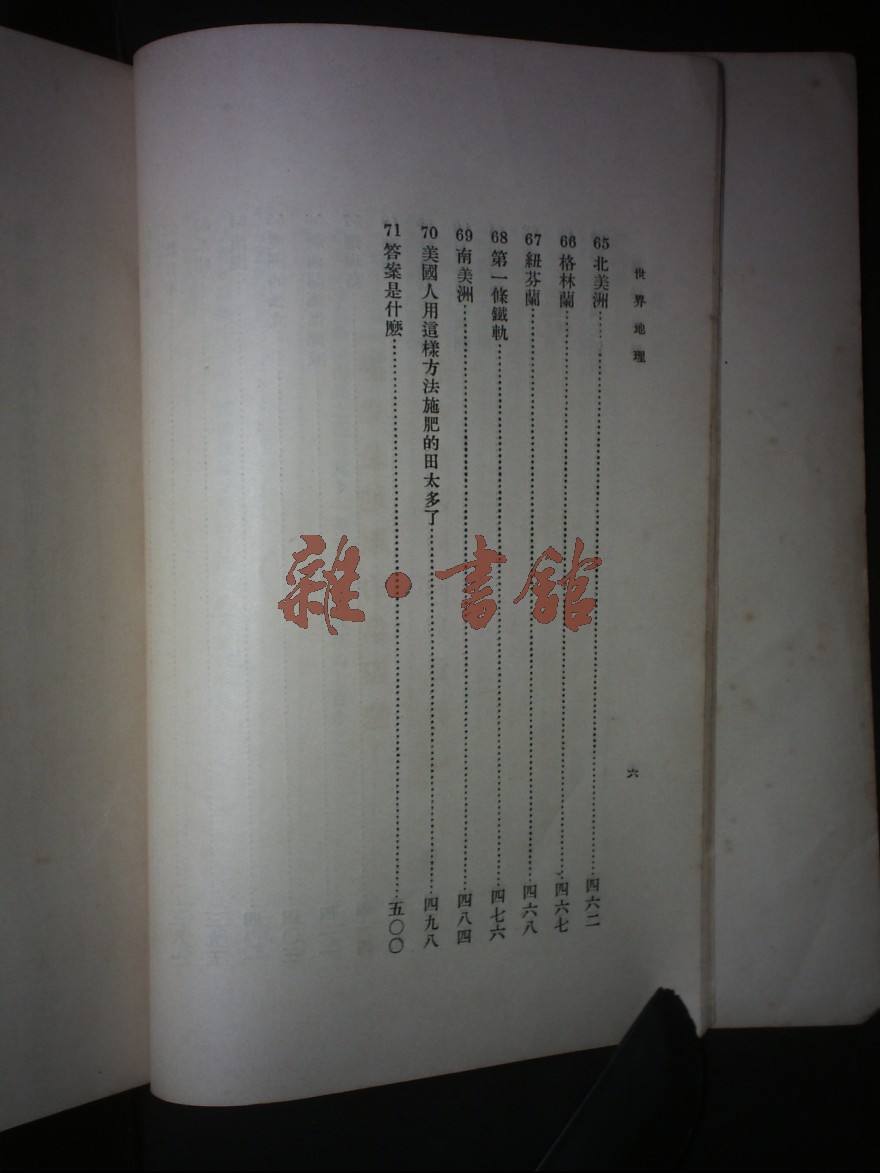 世界地理
65 北美洲……四六二
66 格林蘭……四六七
67 紐芬蘭……四六八
68 第一條鐵軌……四七六
69 南美洲……四八四
70 美國人用這樣方法施肥的田太多了……四九八
71 答案是什麼……五〇〇
六
雜·書館